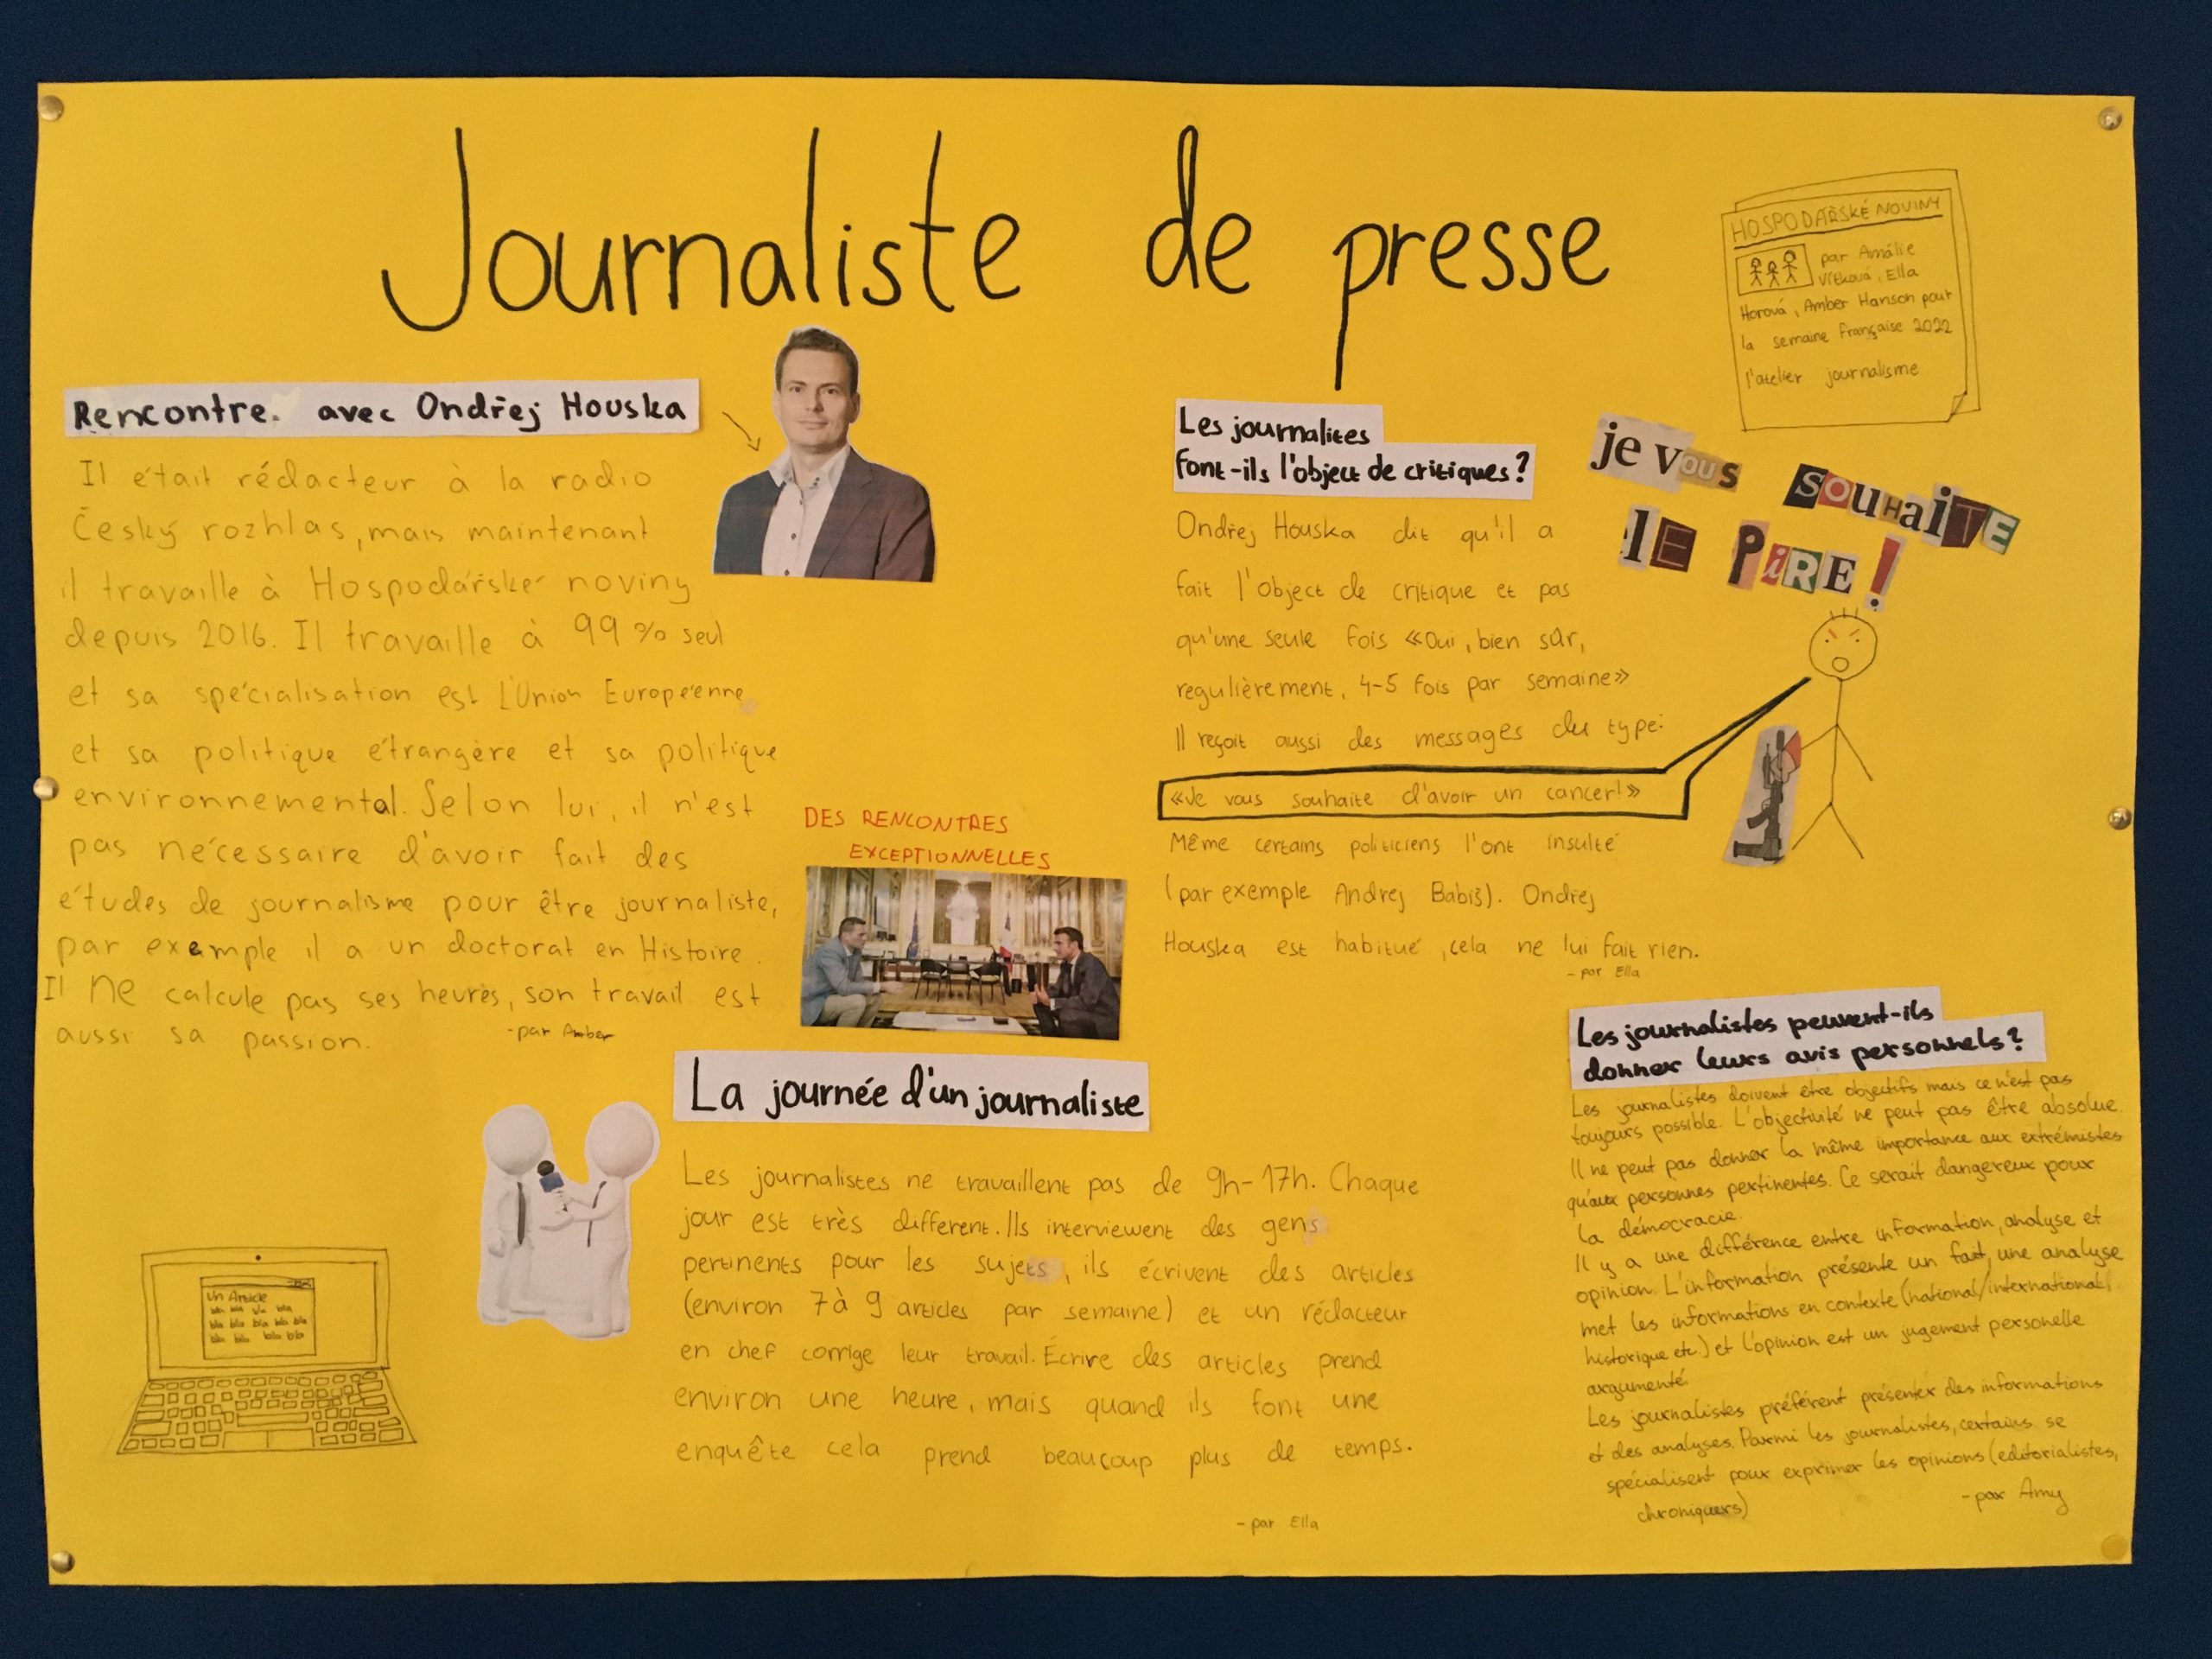 Journaliste de presse
HOSPODÁŘSKÉ NOVINY
par Amálie
Vítková, Ella
Horová, Amber Hanson pour
la semaine française 2022
l'atelier journalisme
Rencontre. avec Ondřej Houska
Il était rédacteur à la radio
Český rozhlas, mais maintenant
il travaille à Hospodářské noviny
depuis 2016. Il travaille à 99% seul
et sa spécialisation est l'Union Européenne
et sa politique étrangère et sa politique
environnemental. Selon lui, il n'est
pas nécessaire d'avoir fait des
études de journalisme pour être journaliste,
par exemple il a un doctorat en Histoire.
Il ne calcule pas ses heures, son travail est
aussi sa passion.
-par Amber
DES RENCONTRES
EXCEPTIONNELLES
La journée d'un journaliste
Les journalistes ne travaillent pas de 9h-17h. Chaque
jour est très different. Ils interviewent des gens
pertinents pour les sujets, ils écrivent des articles
(environ 7 à 9 articles par semaine) et un rédacteur
en chef corrige leur travail. Écrire des articles prend
environ une heure, mais quand ils font une
enquête cela prend beaucoup plus de temps.
-par Ella
Un Article
bla bla bla bla
bla bla bla bla bla
bla bla bla bla
Les journalites
font-ils l'object de critiques?
Ondřej Houska dit qu'il a
fait l'object de critique et pas
qu'une seule fois «Oui, bien sûr,
regulièrement, 4-5 fois par semaine»
Il reçoit aussi des messages du type:
«Je vous souhaite d'avoir un cancer!»
Même certains politiciens l'ont insulté
(par exemple Andrej Babiš). Ondřej
Houska est habitué, cela ne lui fait rien.
-par Ella
je vous souhaite
le pire!
Les journalistes peuvent-ils
donner leurs avis personnels?
Les journalistes doivent être objectifs mais ce n'est pas
toujours possible. L'objectivité ne peut pas être absolue.
Il ne peut pas donner la même importance aux extrémistes
qu'aux personnes pertinentes. Ce serait dangereux pour
la démocracie.
Il y a une différence entre information, analyse et
opinion. L'information présente un fait, une analyse
met les informations en contexte (national/international,
historique etc.) et l'opinion est un jugement personelle
argumenté.
Les journalistes préférent présenter des informations
et des analyses. Parmi les journalistes, certains se
spécialisent pour exprimer les opinions (editorialistes,
chroniquers)
-par Amy